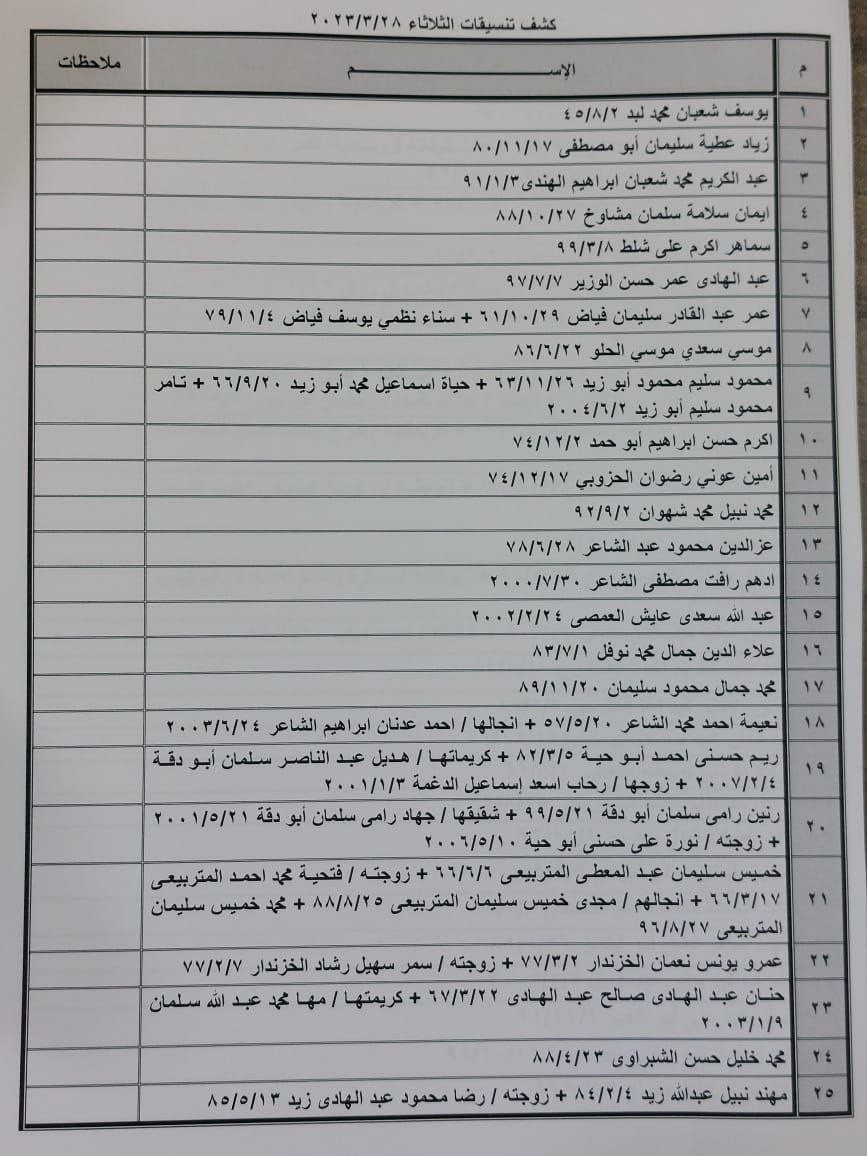 كشف تنسيقات الثلاثاء ٢٠٢٣/٣/٢٨
م الإســــــــم ملاحظات
١ يوسف شعبان محمد لبد ٤٥/٨/٢
٢ زياد عطية سليمان أبو مصطفى ٨٠/١١/١٧
٣ عبد الكريم محمد شعبان ابراهيم الهندى ٩١/١/٣
٤ ايمان سلامة سلمان مشاوخ ٨٨/١٠/٢٧
٥ سماهر اكرم على شلط ٩٩/٣/٨
٦ عبد الهادى عمر حسن الوزير ٩٧/٧/٧
٧ عمر عبد القادر سليمان فياض ٦١/١٠/٢٩ + سناء نظمي يوسف فياض ٧٩/١١/٤
٨ موسي سعدي موسي الحلو ٨٦/٦/٢٢
٩ محمود سليم محمود أبو زيد ٦٣/١١/٢٦ + حياة اسماعيل محمد أبو زيد ٦٦/٩/٢٠ + تامر
محمود سليم أبو زيد ٢٠٠٤/٦/٢
١٠ اكرم حسن ابراهيم أبو حمد ٧٤/١٢/٢
١١ أمين عوني رضوان الحزوبي ٧٤/١٢/١٧
١٢ محمد نبيل محمد شهوان ٩٢/٩/٢
١٣ عزالدين محمود عبد الشاعر ٧٨/٦/٢٨
١٤ ادهم رافت مصطفى الشاعر ٢٠٠٠/٧/٣٠
١٥ عبد الله سعدى عايش العمصى ٢٠٠٢/٢/٢٤
١٦ علاء الدين جمال محمد نوفل ٨٣/٧/١
١٧ محمد جمال محمود سليمان ٨٩/١١/٢٠
١٨ نعيمة احمد محمد الشاعر ٥٧/٥/٢٠ + انجالها / احمد عدنان ابراهيم الشاعر ٢٠٠٣/٦/٢٤
١٩ ريم حسنى احمد أبو حية ٨٢/٣/٥ + كريماتها / هديل عبد الناصر سلمان أبو دقة
٢٠٠٧/٢/٤ + زوجها / رحاب اسعد إسماعيل الدغمة ٢٠٠١/١/٣
٢٠ رنين رامى سلمان أبو دقة ٩٩/٥/٢١ + شقيقها / جهاد رامى سلمان أبو دقة ٢٠٠١/٥/٢١
+ زوجته / نورة على حسنى أبو حية ٢٠٠٦/٥/١٠
٢١ خميس سليمان عبد المعطى المتربيعى ٦٦/٦/٦ + زوجته / فتحية محمد احمد المتربيعى
٦٦/٣/١٧ + انجالهم / مجدى خميس سليمان المتربيعى ٨٨/٨/٢٥ + محمد خميس سليمان
المتربيعى ٩٦/٨/٢٧
٢٢ عمرو يونس نعمان الخزندار ٧٧/٣/٢ + زوجته / سمر سهيل رشاد الخزندار ٧٧/٢/٧
٢٣ حنان عبد الهادى صالح عبد الهادى ٦٧/٣/٢٢ + كريمتها / مها محمد عبد الله سلمان
٢٠٠٣/١/٩
٢٤ محمد خليل حسن الشبراوى ٨٨/٤/٢٣
٢٥ مهند نبيل عبدالله زيد ٨٤/٢/٤ + زوجته / رضا محمود عبد الهادى زيد ٨٥/٥/١٣